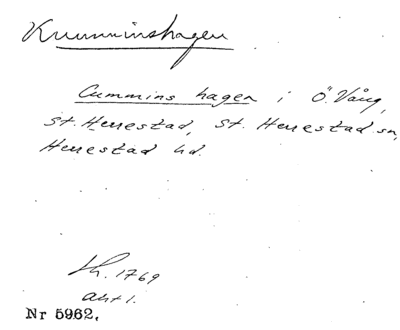 Krumminshagen
Cummins hagen i Ö. Vång,
St. Herrestad, St. Herrestad sn,
Herrestad hd.
Lh. 1769
akt 1.
Nr 5962.